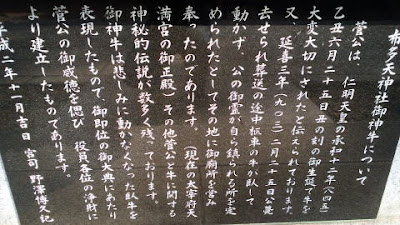 布多天神社御神牛について
菅公は、仁明天皇の承和十二年(八四五)
乙丑六月二十五日丑の刻の御生誕で牛を
大変大切にされたと伝えられております。
又 延喜三年(九〇三)二月二十五日公薨
去せられ葬送の途中柩車の牛が臥して
動かず、公の御霊が自ら鎮られる所を定
められたとしてその地に御廟所を営み
奉ったのであります (現在の太宰府天
満宮の御正殿)その他菅公と牛に関する
神秘的伝説が数多く残っております。
御神牛は悲しみに動かなくなった臥牛を
表現したもので、御即位の御大典にあたり
菅公の御威徳を偲び 役員各位の浄財に
より建立したものであります。
平成二年十一月吉日 宮司 野澤博文記